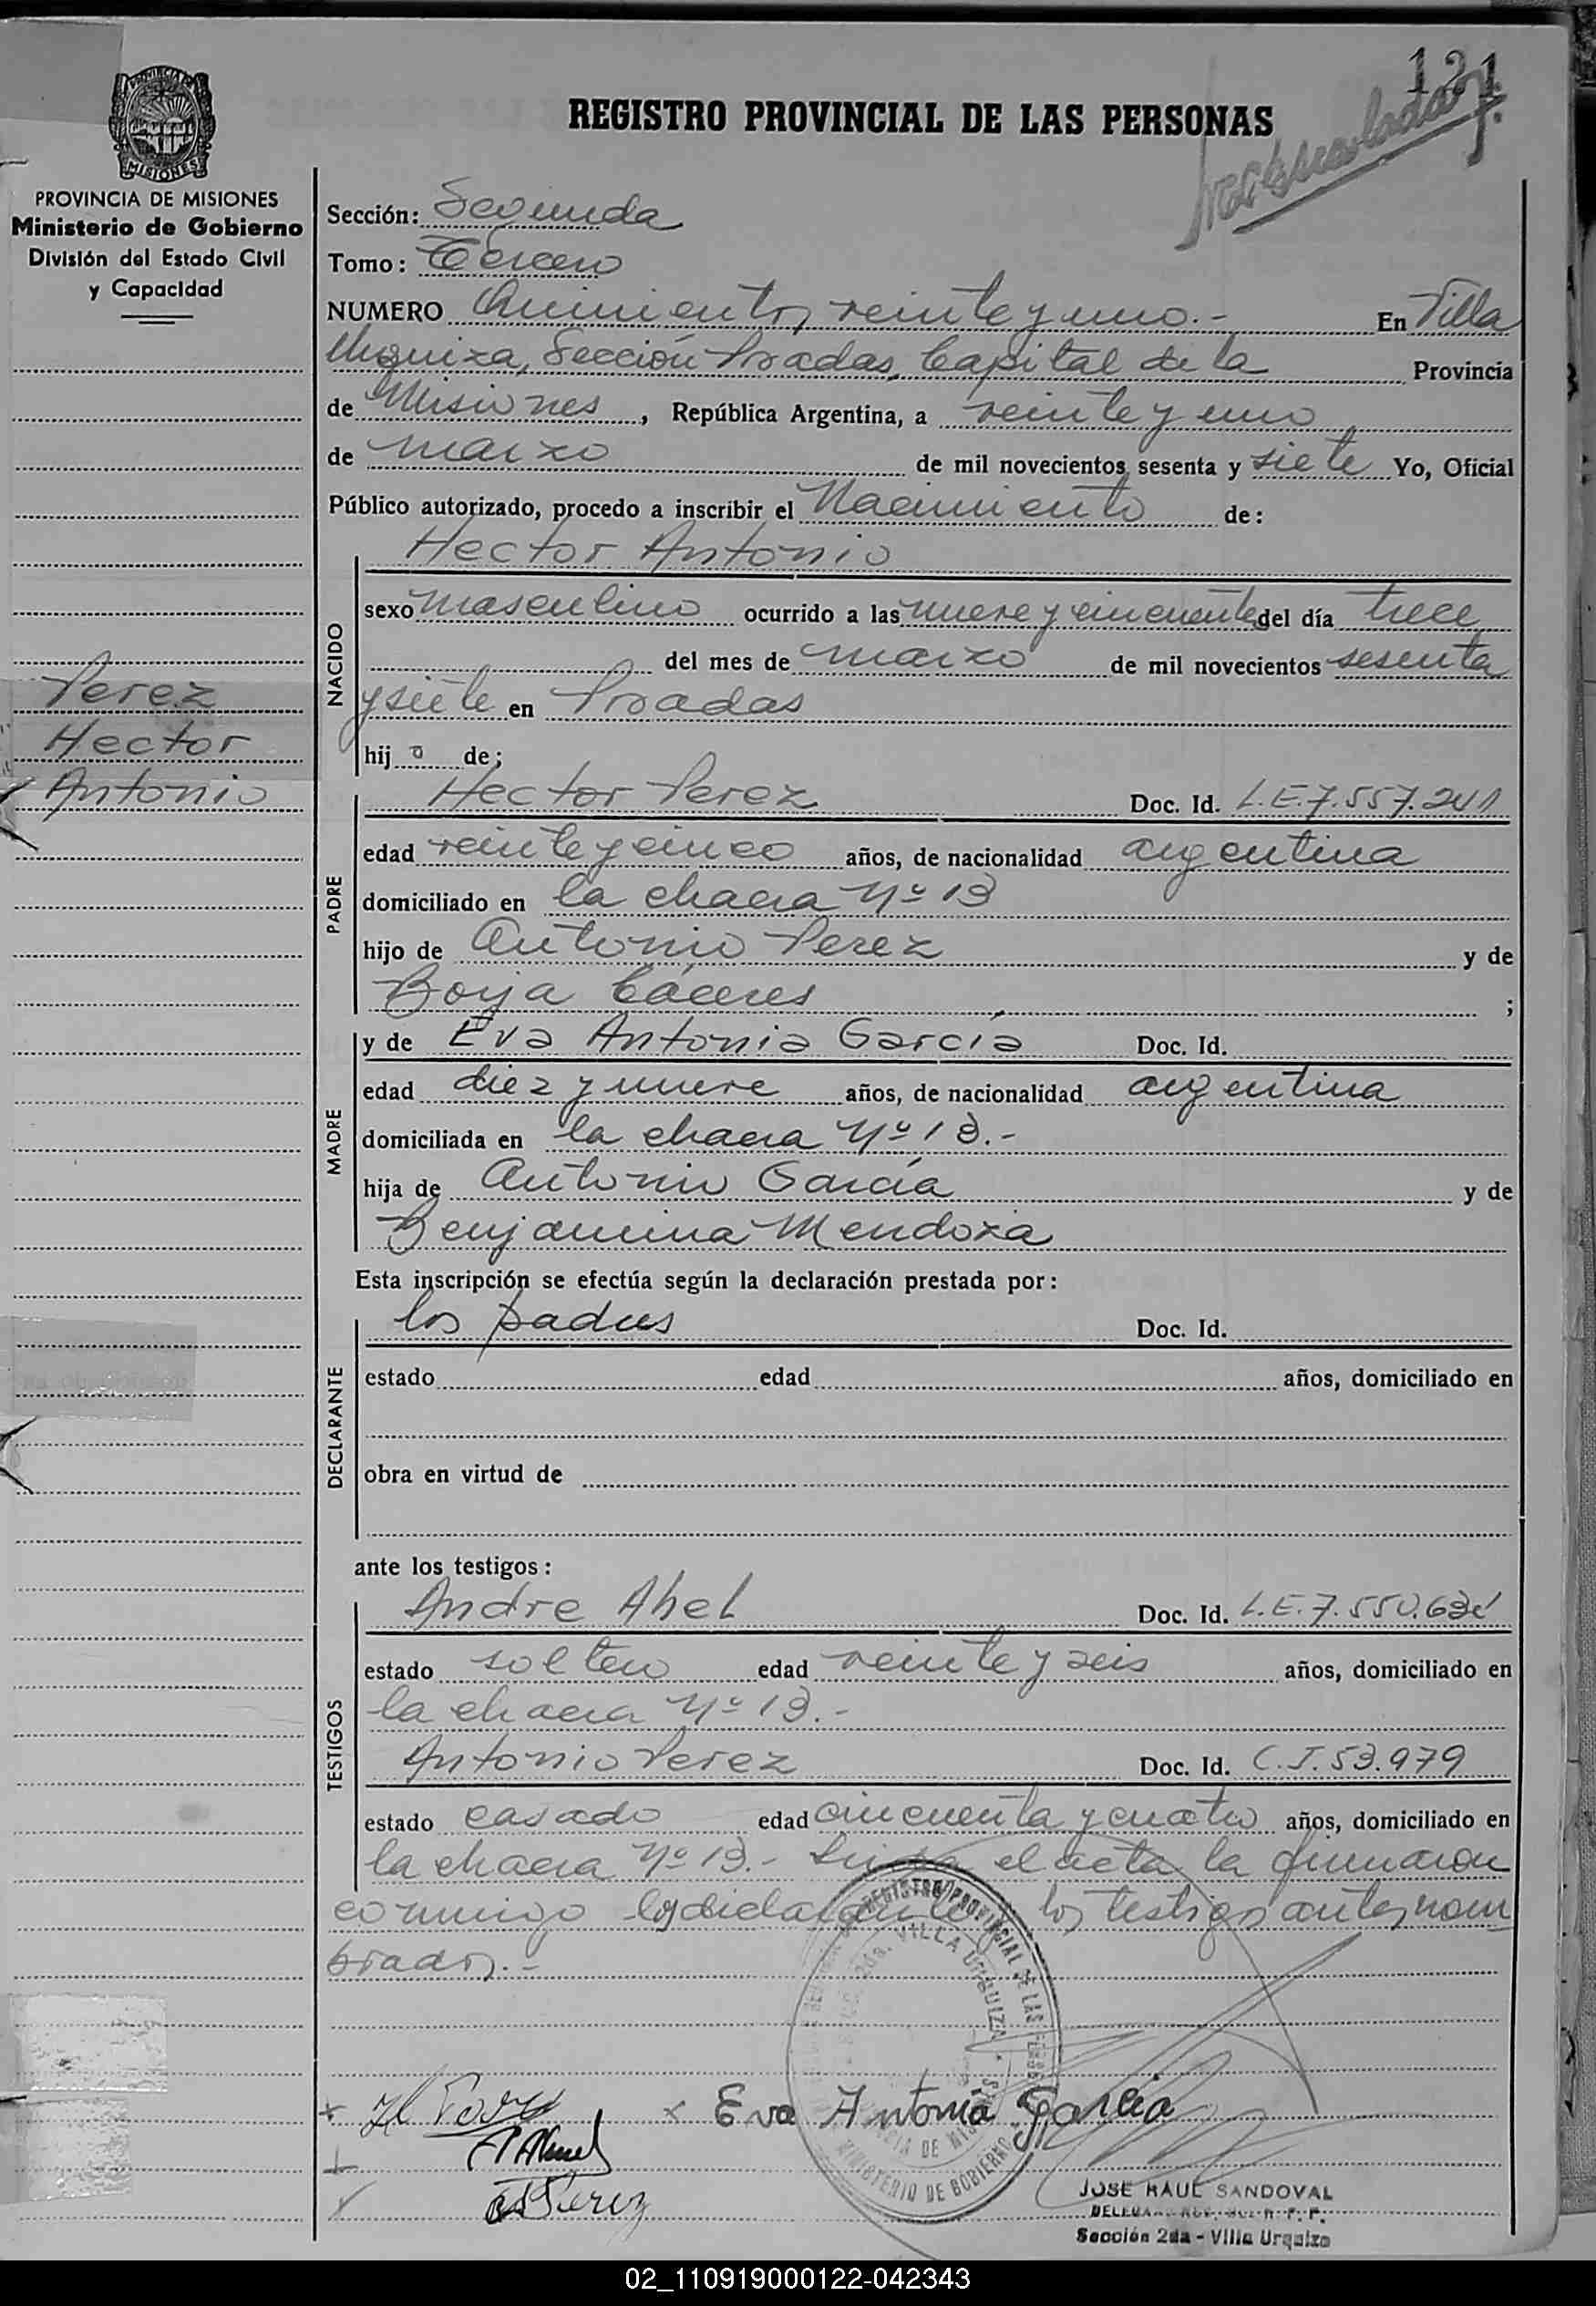 121
REGISTRO PROVINCIAL DE LAS PERSONAS
PROVINCIA DE MISIONES
Ministerio de Gobierno
División del Estado Civil
y Capacidad
Perez
Hector
Antonio
Sección: Segunda
Tomo: Tercero
NUMERO Quinientos veinte y uno.- En Villa
Urquiza, Sección Posadas, Capital de la Provincia
de Misiones, República Argentina, a veinte y uno
de marzo de mil novecientos sesenta y siete Yo, Oficial
Público autorizado, procedo a inscribir el Nacimiento de:
Hector Antonio
NACIDO
sexo masculino ocurrido a las nueve y cincuenta del día trece
del mes de marzo de mil novecientos sesenta
y siete en Posadas
hijo de;
PADRE
Hector Perez Doc. Id. L.E.7.557.241
edad veinte y cinco años, de nacionalidad argentina
domiciliado en la chacra Nº 13
hijo de Antonio Perez y de
Borja Cáceres ;
MADRE
y de Eva Antonia García Doc. Id.
edad diez y nueve años, de nacionalidad argentina
domiciliada en la chacra Nº 13.-
hija de Antonio García y de
Benjamina Mendoza
Esta inscripción se efectúa según la declaración prestada por:
DECLARANTE
los padres Doc. Id.
estado edad años, domiciliado en
obra en virtud de
ante los testigos:
TESTIGOS
Andre Abel Doc. Id. L.E.7.550.63
estado soltero edad veinte y seis años, domiciliado en
la chacra Nº 13.-
Antonio Perez Doc. Id. C.I.53.979
estado casado edad cincuenta y cuatro años, domiciliado en
la chacra Nº 13.- el acta la firmaron
conmigo los declarantes y los testigos antes nom
brados.-
REGISTRO PROVINCIAL DE LAS
VILLA URQUIZA
MINISTERIO DE GOBIERNO
Eva Antonia Garcia
Perez
JOSE RAUL SANDOVAL
Sección 2da - Villa Urquiza
02_110919000122-042343